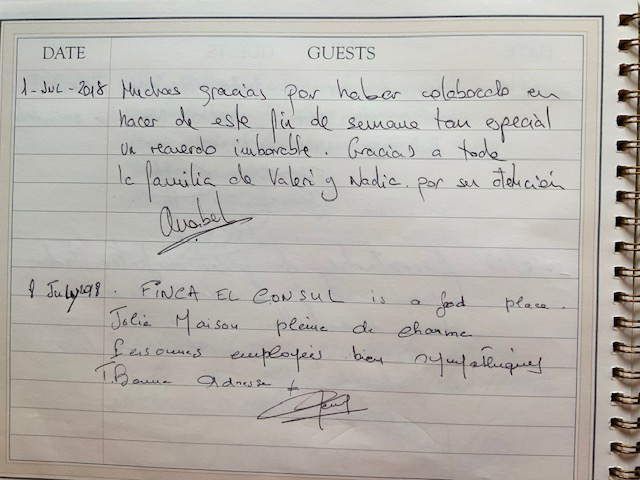 DATE GUESTS
1-JUL-2018 Muchas gracias por haber colaborado en
hacer de este fin de semana tan especial
un recuerdo imborrable. Gracias a toda
la familia de Valeri y Nadia por su atención
Anabel
July 2018. FINCA EL CONSUL is a good place.
Jolie Maison pleine de charme
Personnes employées bien sympathiques
T. Bonne adresse +